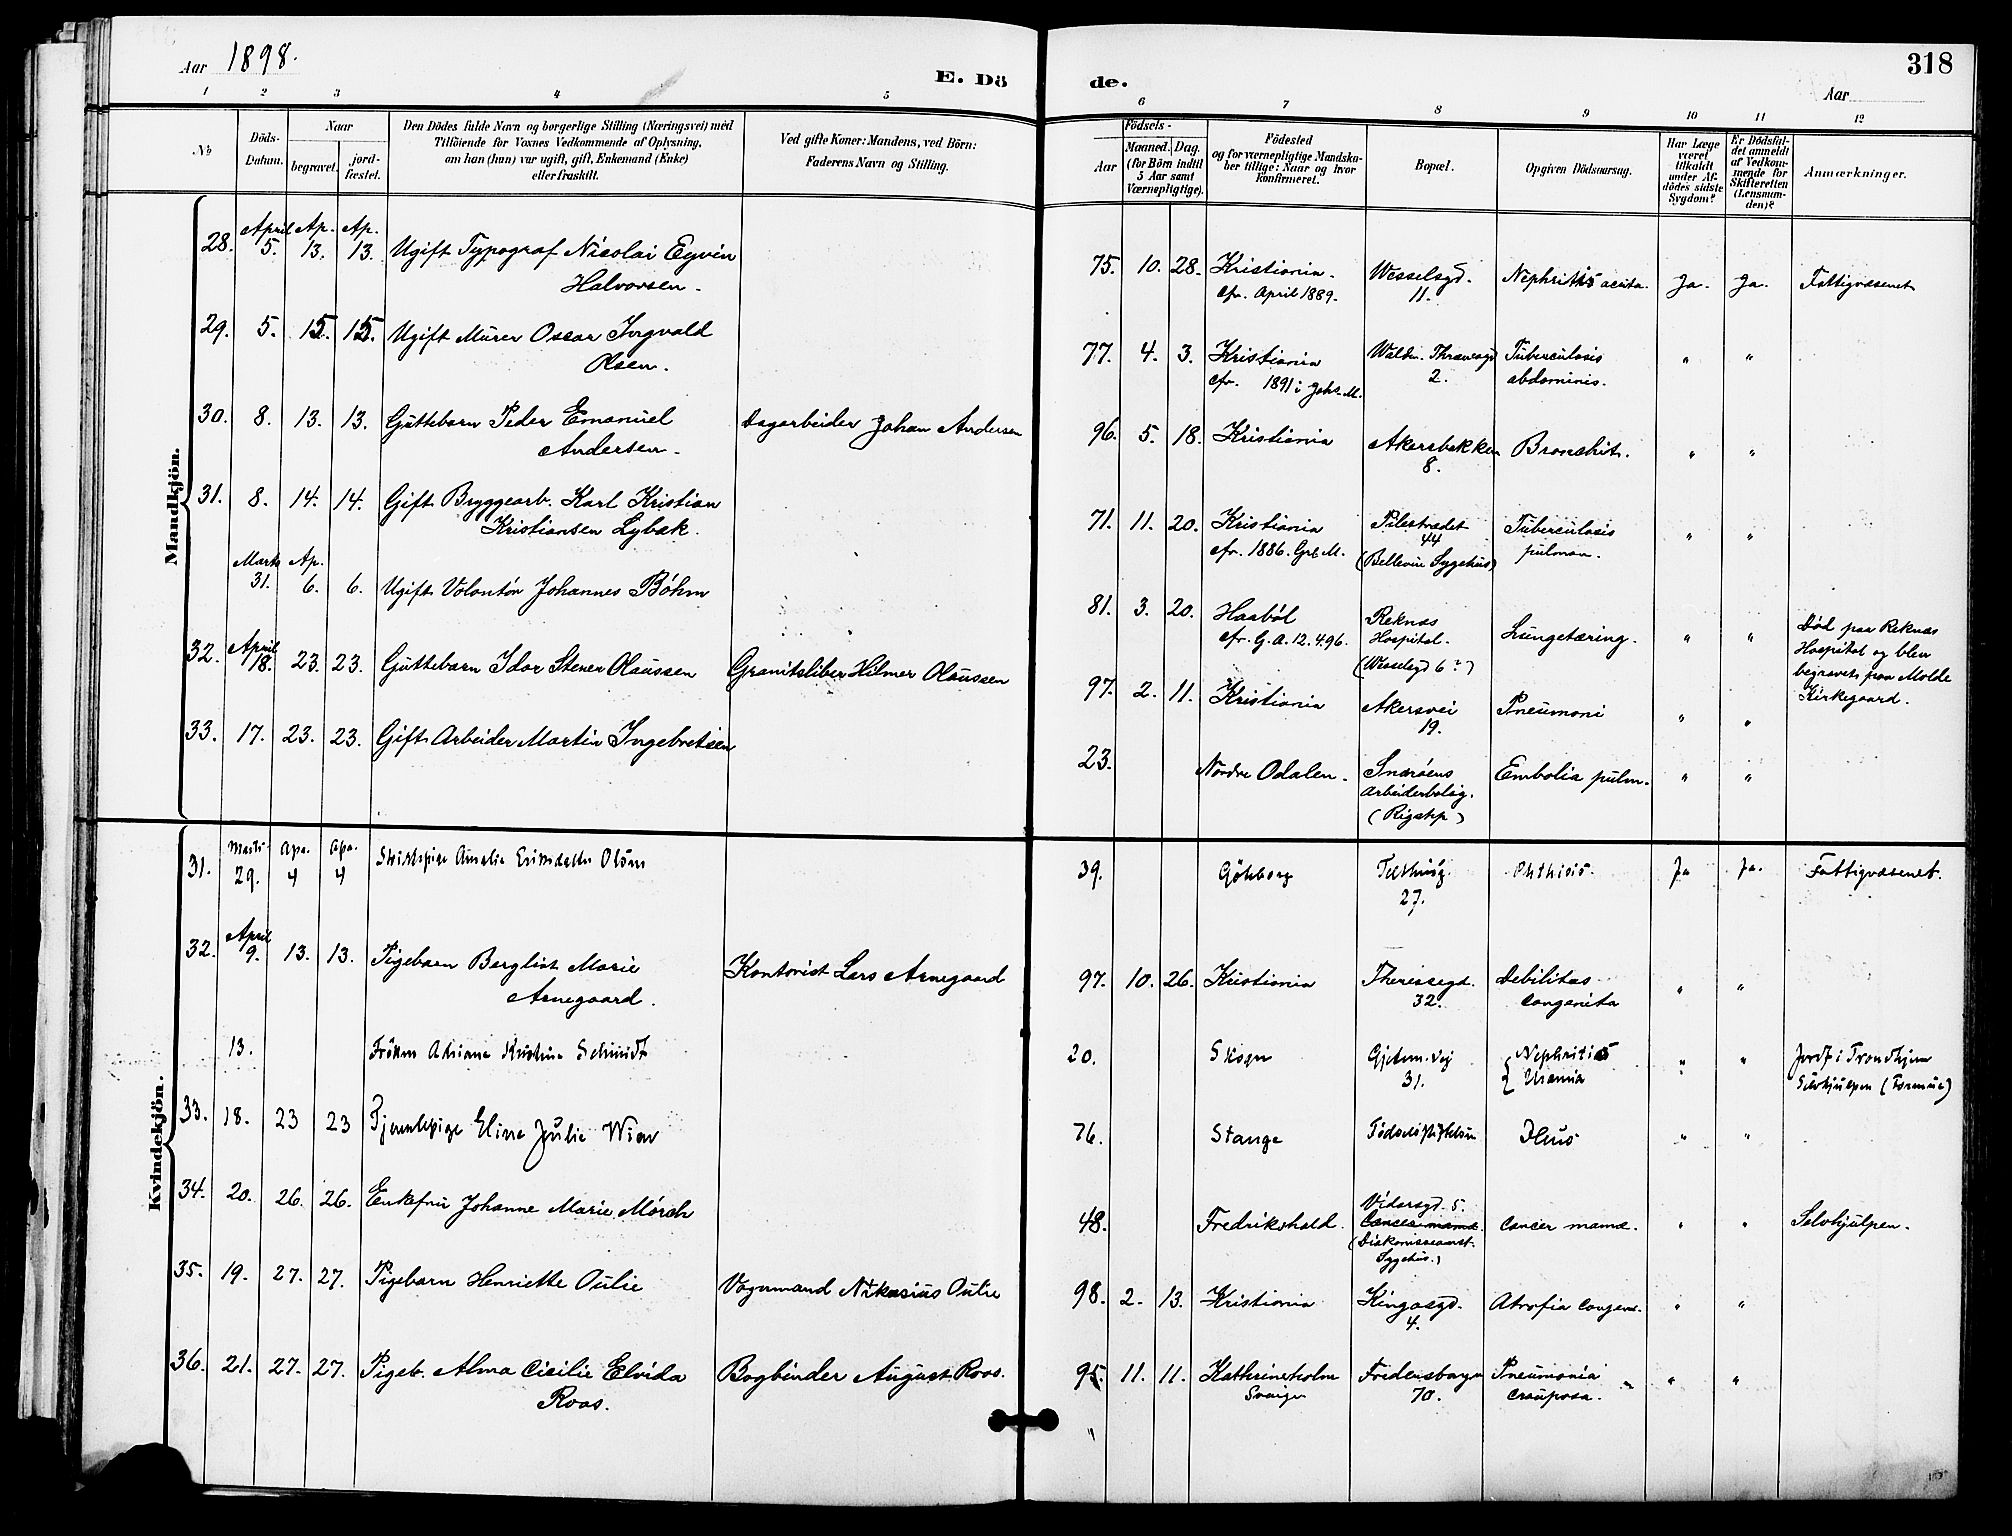 Aar 1898.
E. Dö de.
318
Aar
1 2 3 4 5 6 7 8 9 10 11 12
No
Döds-Datum.
Naar
begravet.
jord-fæstet.
Den Dödes fulde Navn og borgerlige Stilling (Næringsvei) med
Tilföiende for Voxnes Vedkommende af Oplysning,
om han (hun) var ugift, gift, Enkemand (Enke)
eller fraskilt.
Ved gifte Koner: Mandens, ved Börn:
Faderens Navn og Stilling.
Födsels-
Aar
Maaned. Dag.
(for Börn indtil
5 Aar samt
Værnepligtige).
Födested
og for værnepligtige Mandska-
ber tillige: Naar og hvor
konfirmeret.
Bopæl.
Opgiven Dödsaarsag.
Har Læge
været
tilkaldt
under Af-
dödes sidste
Sygdom?
Er Dödsfal-
det anmeldt
af Vedkom-
mende for
Skifteretten
(Lensman-
den)?
Anmærkninger.
Mandkjön.
28. April 5. Ap. 13. Ap. 13. Ugift Typograf Nicolai Eyvin
Halvorsen.
75. 10. 28. Kristiania. Wesselsgd. Nephritis acuta. Ja. Ja. Fattigvæsenet
cfr. April 1889. 11.
29. 5. 15. 15. Ugift Murer Oscar Ingvald
Olsen.
77. 4. 3. Kristiania Waldm. Thranesgd Tuberculosis " "
cfr. 1891 i Johs. M. 2. abdominis.
30. 8. 13. 13. Guttebarn Peder Emanuel Dagarbeider Johan Andersen
Andersen.
96. 5. 18. Kristiania Akersbakken Bronchit. " "
8.
31. 8. 14. 14. Gift Bryggearb. Karl Kristian
Kristiansen Lybæk.
71. 11. 20. Kristiania Pilestrædet Tuberculosis " "
cfr. 1886. Grb M. 44 pulmon.
(Bellevue Sygehus)
Marts 31. Ap. 6. 6. Ugift Volontør Johannes Böhm
81. 3. 20. Haaböl Reknæs Lungetæring. " " Död paa Reknæs
cfr. G. A. 12.4.96. Hospital. Hospital og blev
(Wesselsgd 6?) begravet paa Molde
Kirkegaard.
32. April 18. 23. 23. Guttebarn Idar Stener Olaussen Granitsliber Hilmar Olaussen
97. 2. 11. Kristiania Akersvei Pneumoni " "
19.
33. 17. 23. 23. Gift Arbeider Martin Ingebretsen
23. Nordre Odalen. Snarøens Embolia pulm. " "
Arbeiderbolig.
(Rigshp)
Kvindekjön.
31. Marts 29. Apr. 4 Apr. 4 Amalie Olsen
39. Göteborg Telthusg. Phthisis. Ja Ja. Fattigvæsenet.
27.
32. April 9. 13. 13. Pigebarn Bergliot Marie Kontorist Lars Arnegaard
Arnegaard.
97. 10. 26. Kristiania Theresesgd. Debilitas " "
32. congenita
13. Fröken Adriana Kristine Schmidt
20. Skogn Gjetem.vej Nephritis " " Jordf. i Trondhjem
31. Uræmia Selvhjælpen (Formue)
33. 18. 23 23 Tjenestepige Eline Julie Wien
76. Stange Födselsstiftelsen Ileus " "
34. 20. 26. 26. Enkefru Johanne Marie Mörch
48. Fredrikshald. Vidarsgd. 5. Cancer mamæ. " " Selvhjulpen.
Cancer mamæ.
(Diakonisseanst.
Sygehus.)
35. 19. 27. 27. Pigebarn Henriette Oulie Vognmand Nikasius Oulie
98. 2. 13. Kristiania Kingosgd. Atrofia congen. " "
4.
36. 21. 27. 27. Pigeb. Alma Cicilie Elvida Bogbinder August Roos.
Roos.
95. 11. 11. Kathrineholm Fredensborgv Pneumonia " "
Sverige 70. crouposa.